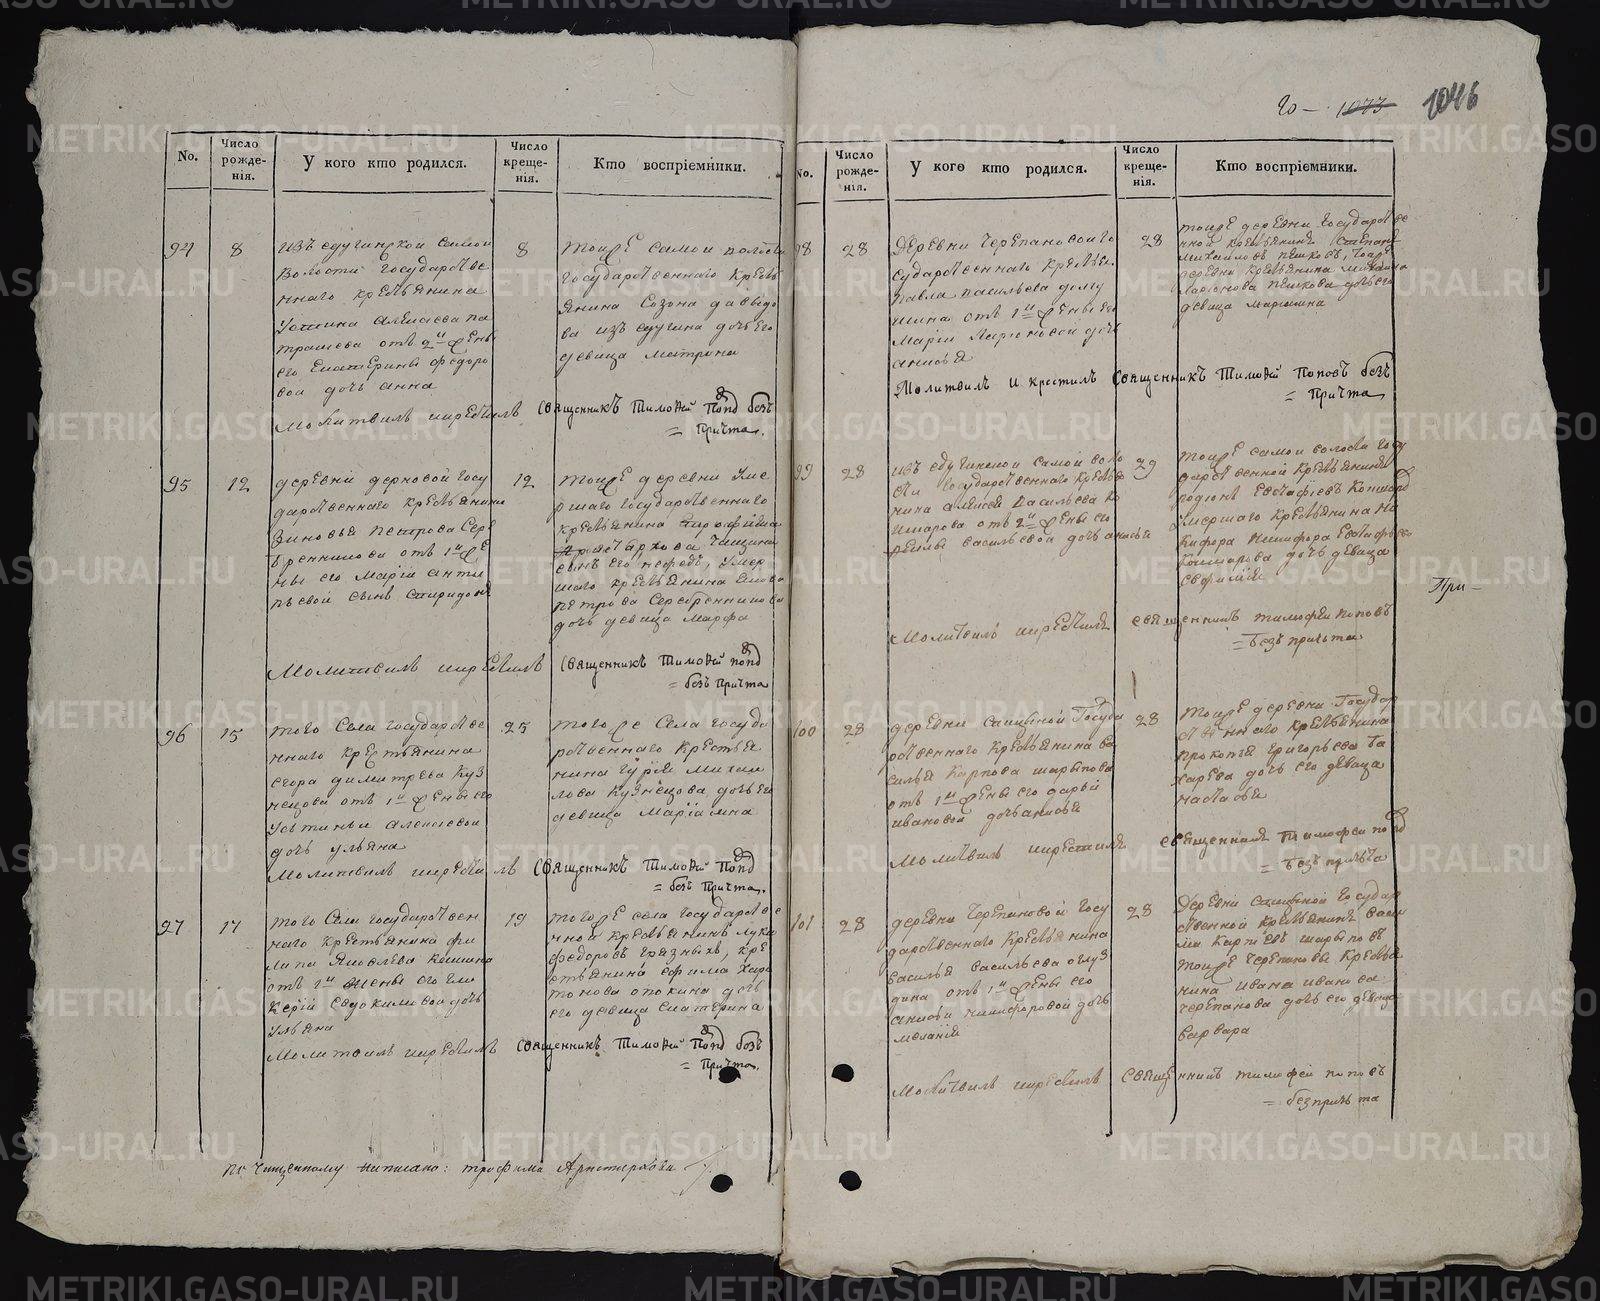 20 — 1073 1046
No. Число рожде-нія. У кого кто родился. Число креще-нія. Кто воспріемники.
94 8 8
изъ едугинской самой
волости государстве
ннаго крестьянина
Устина Алексѣева па
трашева отъ 2й жены
его Екатерины федоро
вой дочь анна
тоиже самой волости
государственнаго кресть
янина Созона давыдо
ва изъ едугина дочь его
девица матрона
молитвилъ икрестилъ священникъ Тимоѳей Попов безъ
= Причта.
95 12 12
деревни дерновой госу
дарственнаго крестьянина
Зиновья петрова Сере
бренникова отъ 1й же
ны его Марїи анти
пьевой сынъ спиридонъ
тоиже деревни уме
ршаго государственнаго
крестьянина
сынъ его нефедъ, умер
шаго крестьянина
петрова Серебренникова
дочь девица марфа
Молитвилъ икрестилъ священникъ Тимоѳей Попов
= безъ Причта
96 15 25
того Села государстве
ннаго крестьянина
егора димитрева Куз
нецова отъ 1й жены его
Устиньи алексѣевой
дочь ульяна
тогоже Села госуда
рственнаго крестья
нина гурїя михаи
лова кузнецова дочь его
девица марїамна
Молитвилъ икрестилъ священникъ Тимоѳей Попов
= безъ Причта.
97 17 19
того Села государствен
наго крестьянина фи
липа Яковлева
отъ 1й жены его гли
керїи Евдокимовой дочь
ульяна
тогоже села государстве
нной крестьянинъ лука
федоровъ грязныхъ, кре
стьянина ефима хари
тонова дочь
его девица екатерина
Молитвилъ икрестилъ священникъ Тимоѳей Попов безъ
= Причта.
По чищенному написано: трофима Аристархова
No. Число рожде-нія. У кого кто родился. Число креще-нія. Кто воспріемники.
98 28 28
Деревни черепановой го
сударственнаго крестья
павла васильева
отъ 1й жены его
Марїи Ларїоновой дочь
анисья
тоиже деревни государстве
нной крестьянинъ степанъ
михайловъ пешковъ, тоиже
деревни крестьянина михаила
ларїонова пешкова дочь его
девица марїамна
Молитвилъ и крестилъ Священникъ Тимоѳей Поповъ безъ
= Причта
99 28 29
изъ едугинской самой воло
сти государственнаго крестья
нина алексея васильева ко
шкарова отъ 2й жены его
васильевой дочь анисья
тоиже самой волости госу
дарственной крестьянинъ
родїонъ Евстафїевъ Кошкаровъ
умершаго крестьянина ни
кифора Никифора Евстафьева
кошкарова дочь девица
евфимїя
Молитвилъ икрестилъ священникъ тимофеи поповъ
= безъ причта
При —
100 28 28
деревни государ
ственнаго крестьянина ва
силья карпова шарыпова
отъ 1й жены его дарьи
ивановой дочь анисья
тоиже деревни Государ
ственнаго крестьянина
прокопья григорьева за
харова дочь его девица
настасья
Молитвилъ икрестилъ священникъ Тимофеи Попов
= безъ причта
101 28 28
деревни Черепановой госу
дарственнаго крестьянина
василья васильева
отъ 1й жены его
анисьи никифоровой дочь
меланїя
Деревни государ
ственной крестьянинъ васи
лїи карпїевъ шарыповъ
тоиже черепановы крестья
нина ивана иванова
черепанова дочь его девица
варвара
Молитвилъ икрестилъ священникъ тимофей поповъ
= безпричта